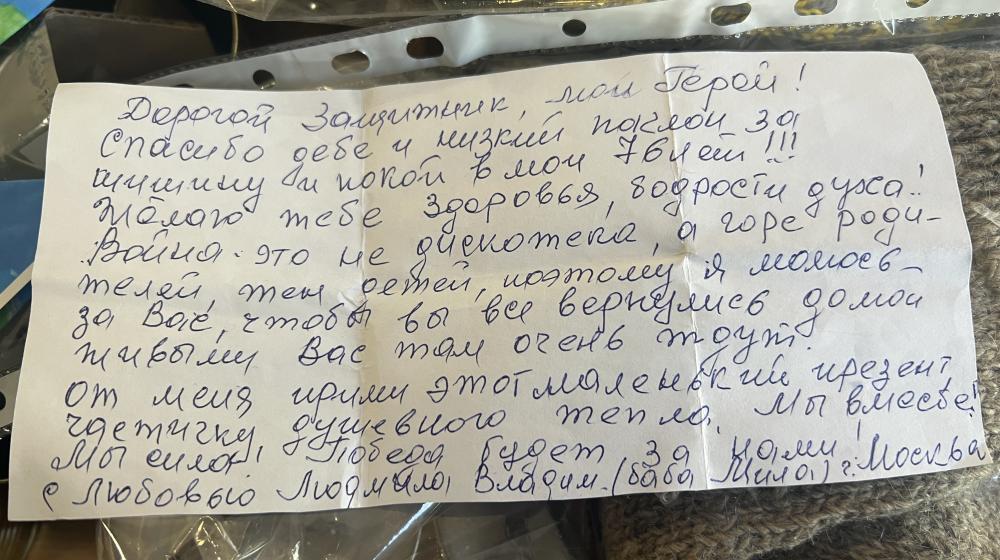 Дорогой Защитник, мой Герой!
Спасибо тебе и низкий поклон за
тишину и покой в мои 76 лет!!!
Желаю тебе здоровья, бодрости духа!
Война - это не дискотека, а горе роди-
телей, жен, детей, поэтому я молюсь
за Вас, чтобы вы все вернулись домой
живыми Вас там очень ждут.
От меня прими этот маленький презент,
частичку душевного тепла. Мы вместе!
Мы сила! Победа будет за нами!
с Любовью Людмила Владим. (баба Мила) г. Москва